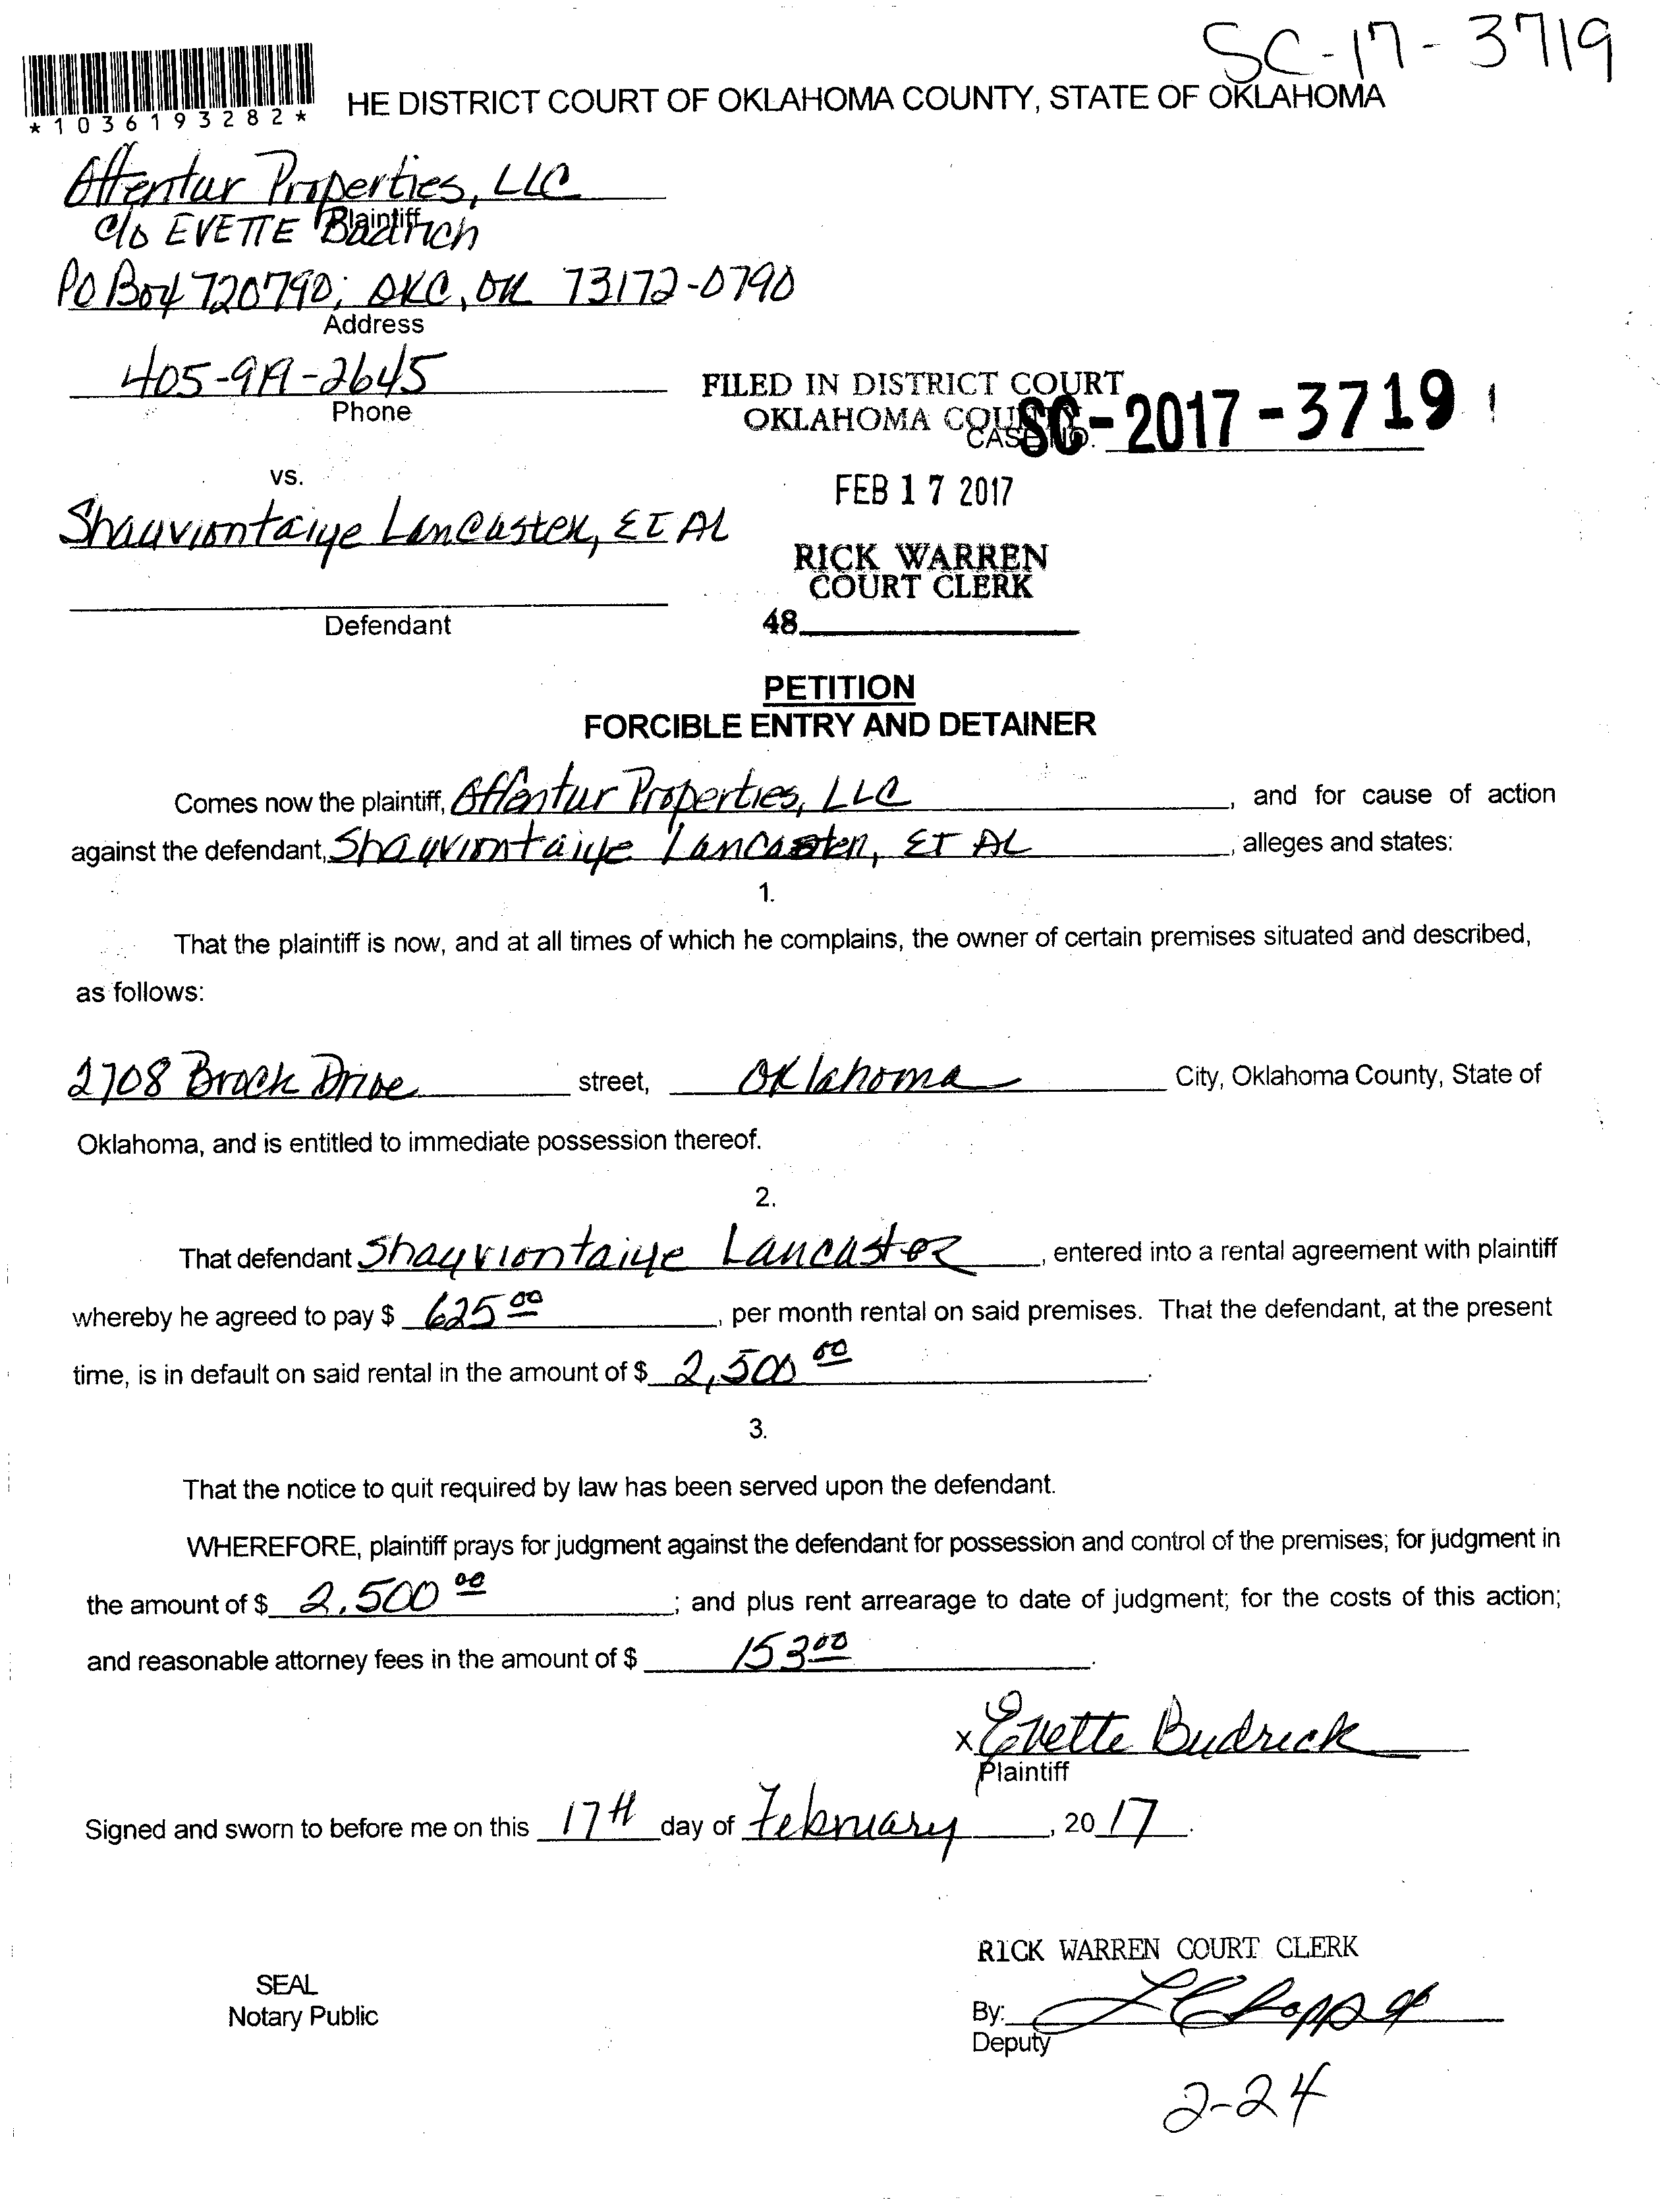 SC-17-3719
*1036193282*
HE DISTRICT COURT OF OKLAHOMA COUNTY, STATE OF OKLAHOMA
Properties, LLC
Plaintiff
c/o EVETTE
PO Box 720790; OKC, OK 73172-0790
Address
405-919-2645
Phone
FILED IN DISTRICT COURT
OKLAHOMA COUNTY
CASE NO. SC-2017-3719
vs.
FEB 17 2017
Shauviontaiye Lancaster, ET AL
RICK WARREN
COURT CLERK
Defendant
48
PETITION
FORCIBLE ENTRY AND DETAINER
Comes now the plaintiff, Properties, LLC, and for cause of action
against the defendant, Shauviontaiye Lancaster, ET AL, alleges and states:
1.
That the plaintiff is now, and at all times of which he complains, the owner of certain premises situated and described,
as follows:
2708 Brock Drive street, Oklahoma City, Oklahoma County, State of
Oklahoma, and is entitled to immediate possession thereof.
2.
That defendant Shauviontaiye Lancaster, entered into a rental agreement with plaintiff
whereby he agreed to pay $ 625 00, per month rental on said premises. That the defendant, at the present
time, is in default on said rental in the amount of $ 2,500 00.
3.
That the notice to quit required by law has been served upon the defendant.
WHEREFORE, plaintiff prays for judgment against the defendant for possession and control of the premises; for judgment in
the amount of $ 2,500 00; and plus rent arrearage to date of judgment; for the costs of this action;
and reasonable attorney fees in the amount of $ 153 00.
x Evette Budrick
Plaintiff
Signed and sworn to before me on this 17th day of February, 2017.
RICK WARREN COURT CLERK
SEAL
Notary Public
By:
Deputy
2-24